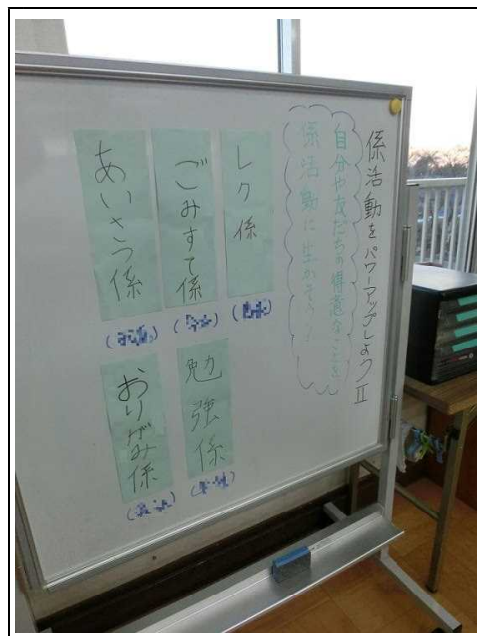 係活動をパワーアップしようⅡ
自分や友だちの得意なことを
係活動に生かそう!
レク係
ごみすて係
あいさつ係
勉強係
おりがみ係